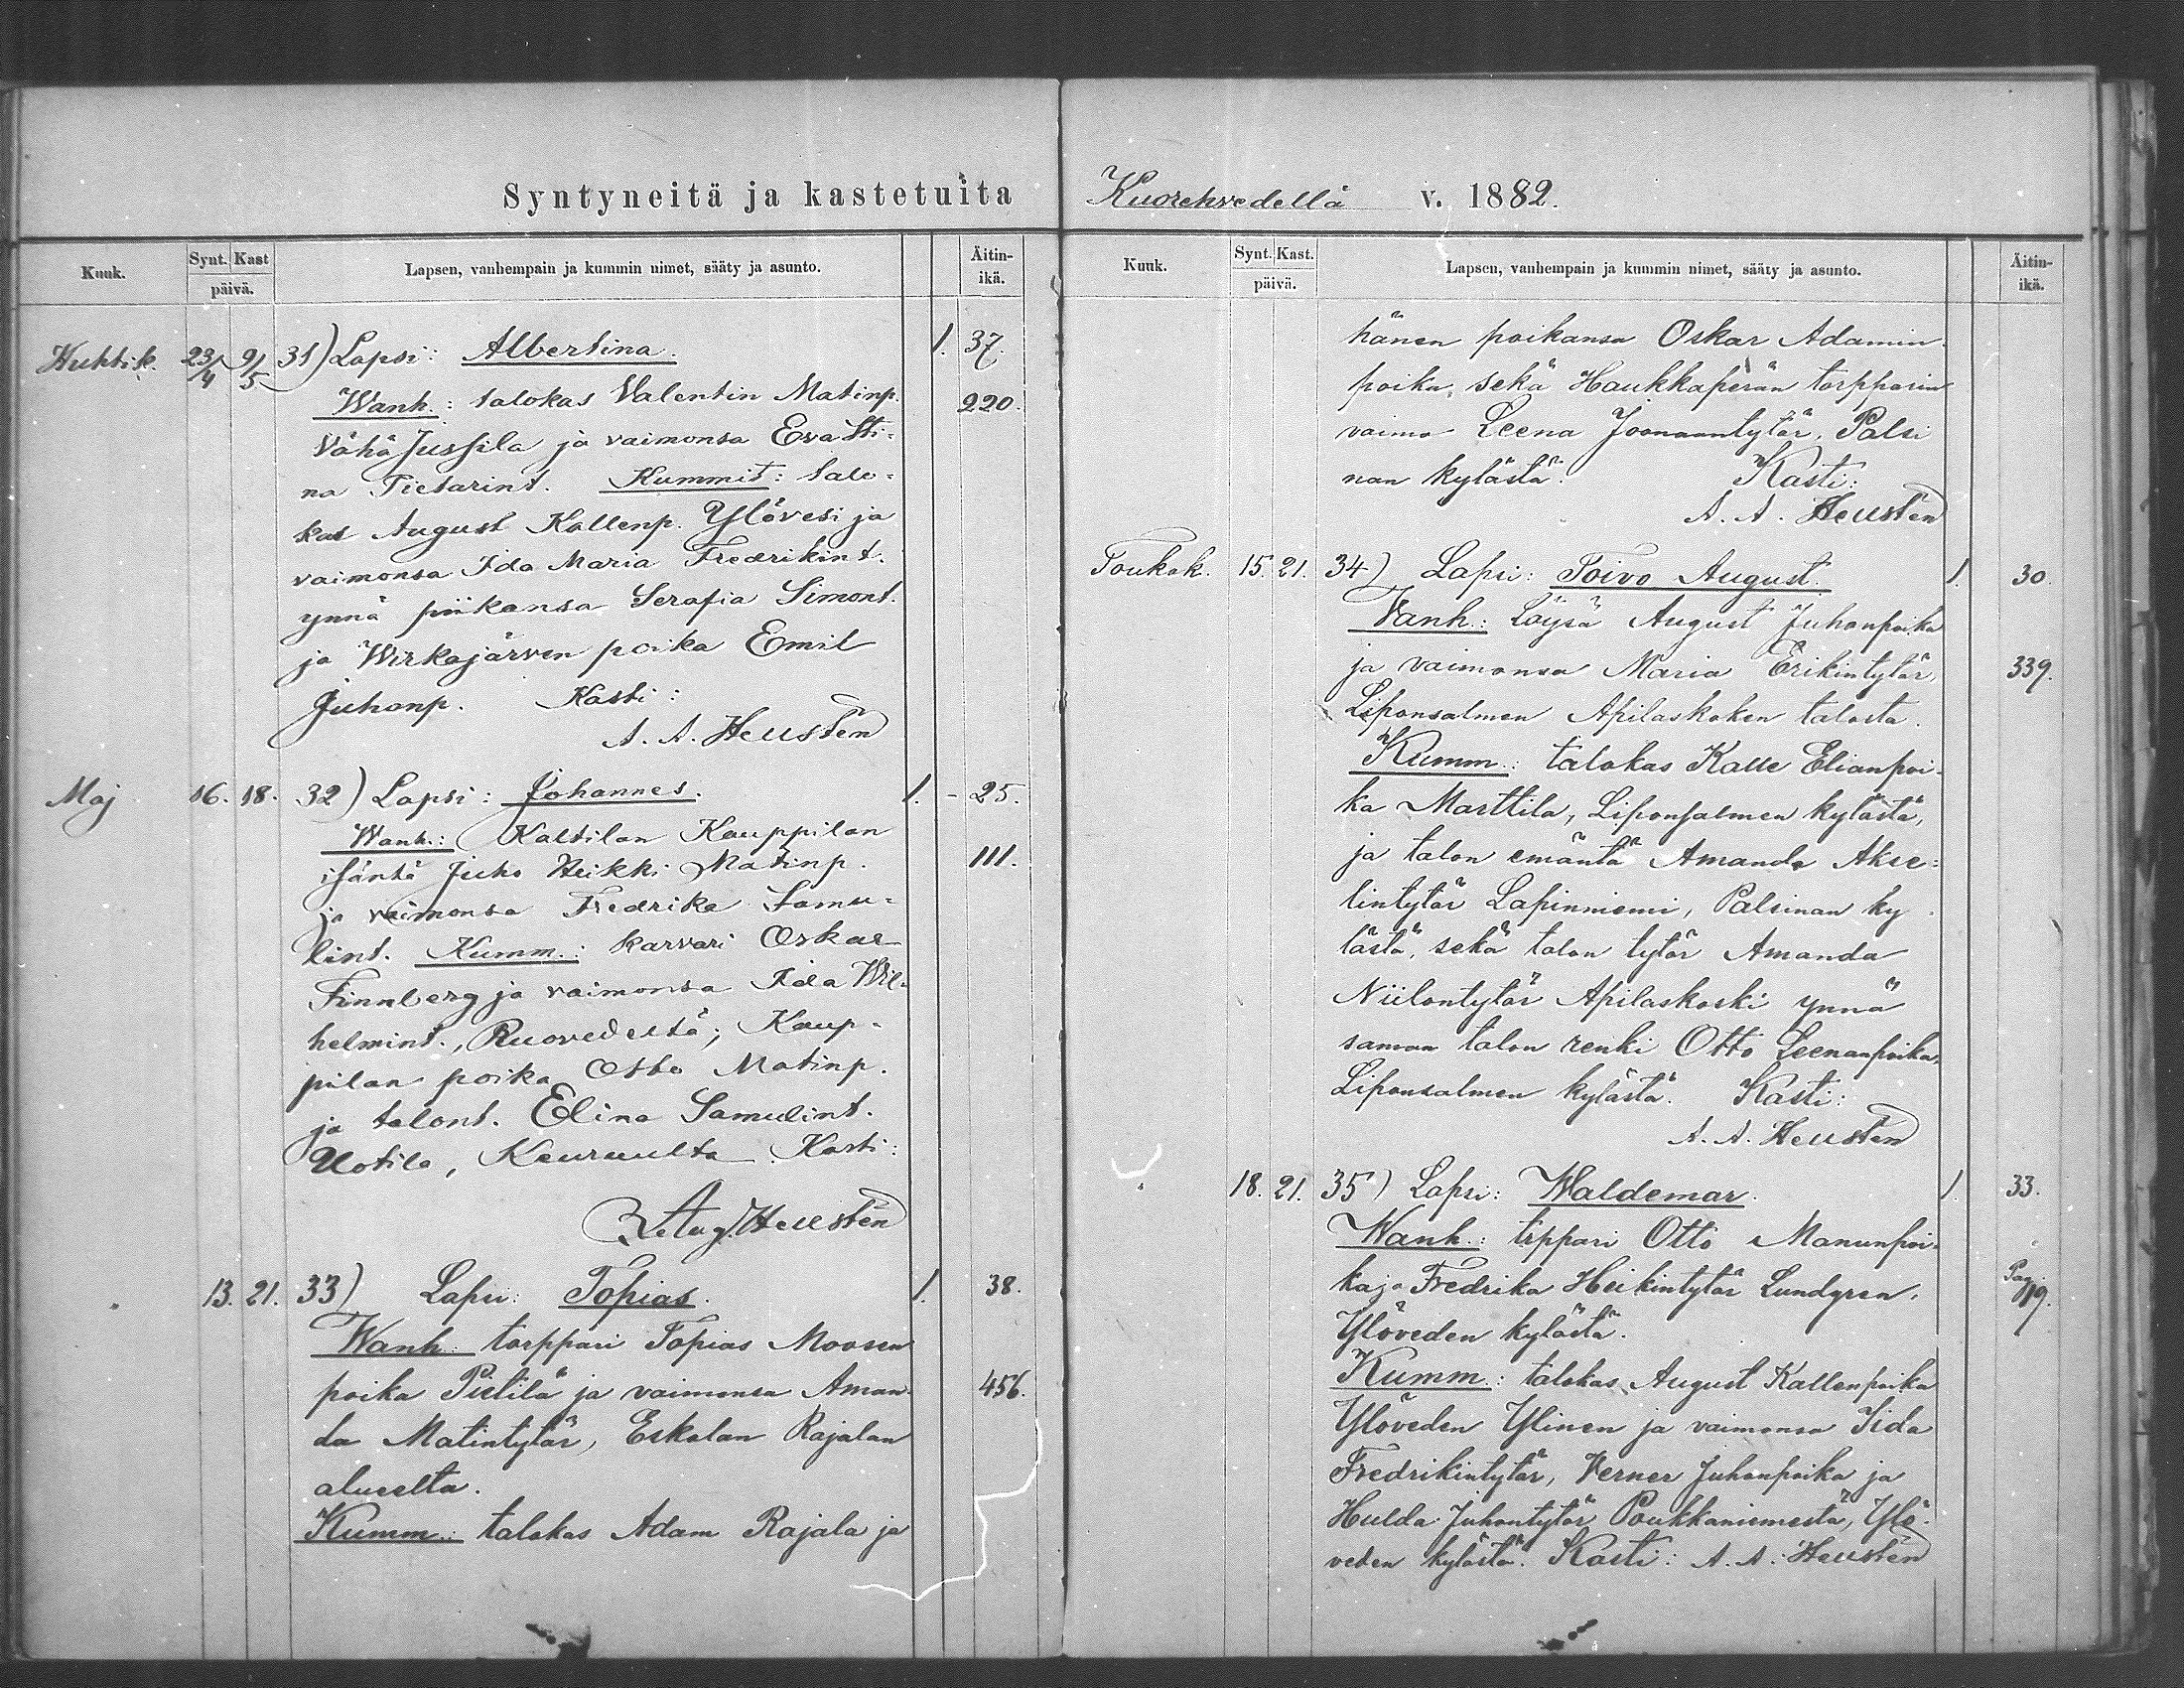 Syntyneitä ja kastetuita
Kuuk.
Synt. Kast
päivä.
Lapsen, vanhempain ja kummin nimet, sääty ja asunto.
Äitin-
ikä.
Huhtik. 23/4 9/5 31) Lapsi: Albertina. 1. 37.
Wanh.: talokas Valentin Matinp. 220.
Vähä Jussila ja vaimonsa Eva Sti-
na Pietarint. Kummit: talo-
kas August Kallenp. Ylövesi ja
vaimonsa Ida Maria Fredrikint.
ynnä piikansa Serafia Simont.
ja Wirkajärven poika Emil
Juhonp. Kasti:
A. A. Heusten
Maj 16. 18. 32) Lapsi: Johannes. 1. 25.
Wanh.: Kaltilan Kauppilan
isäntä Juho Heikki Matinp. 111.
ja vaimonsa Fredrika Samu-
lint. Kumm.: karvari Oskar
Finnberg ja vaimonsa Ida Wil-
helmint., Ruovedeltä; Kaup-
pilan poika Otto Matinp.
ja talont. Elina Samulint.
Uotila, Keuruulta Kasti:
Aug. Heusten
13. 21. 33) Lapsi: Topias. 1. 38.
Wanh: torppari Topias Moosen
poika Pietilä ja vaimonsa Aman- 456.
da Matintytär, Eskolan Rajalan
alueelta.
Kumm.: talokas Adam Rajala ja
Kuorehvedellä v. 1882.
Kuuk.
Synt. Kast.
päivä.
Lapsen, vanhempain ja kummin nimet, sääty ja asunto.
Äitin-
ikä.
hänen poikansa Oskar Adamin-
poika, sekä Haukkaperän torpparin
vaimo Leena Joonaantytär, Palsi
nan kylästä. Kasti:
A. A. Heusten
Toukok. 15. 21. 34) Lapsi: Toivo August. 1. 30.
Vanh.: Löysä August Juhonpoika
ja vaimonsa Maria Erikintytär, 339.
Liponsalmen Apilaskoken talosta.
Kumm.: talokas Kalle Elianpoi-
ka Marttila, Liponsalmen kylästä,
ja talon emäntä Amanda Akse-
lintytär Lapinniemi, Palsinan ky
lästä, sekä talon tytär Amanda
Niilontytär Apilaskoski ynnä
saman talon renki Otto Leenanpoika,
Liponsalmen kylästä. Kasti:
A. A. Heusten
18. 21. 35) Lapsi: Waldemar. 1. 33.
Wanh.: tippari Otto Manunpoi-
ka ja Fredrika Heikintytär Lundgren, Pag
Ylöveden kylästä.
Kumm.: talokas August Kallenpoika
Ylöveden Ylinen ja vaimonsa Iida
Fredrikintytär, Verner Juhonpoika ja
Hulda Juhontytär Poukkaniemestä, Ylö-
veden kylästä. Kasti: A. A. Heusten